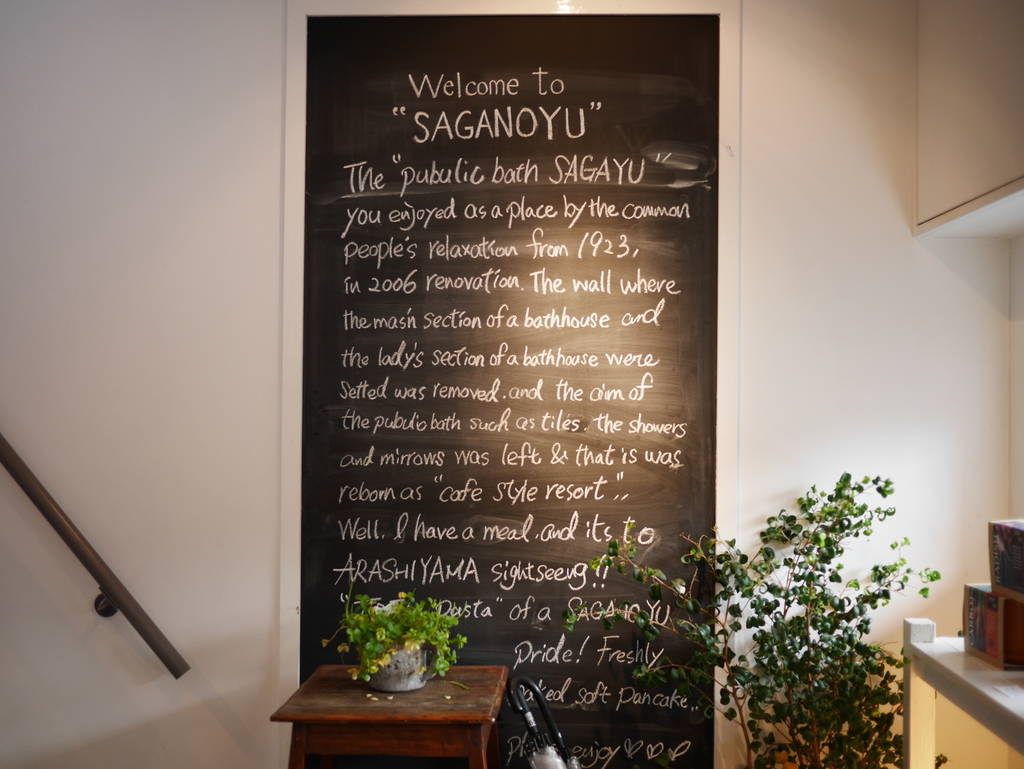 Welcome to
"SAGANOYU"
The "pubulic bath SAGAYU"
you enjoyed as a place by the common
people's relaxation from 1923,
in 2006 renovation. The wall where
the mas'n section of a bathhouse and
the lady's section of a bathhouse were
setted was removed. and the aim of
the pubulic bath such as tiles. the showers
and mirrows was left & that is was
reborn as "cafe style resort",,
Well. I have a meal. and it's to
ARASHIYAMA sightseeng!!
Pasta" of a SAGANOYU
Pride! Freshly
soft pancake..
enjoy ♡♡♡